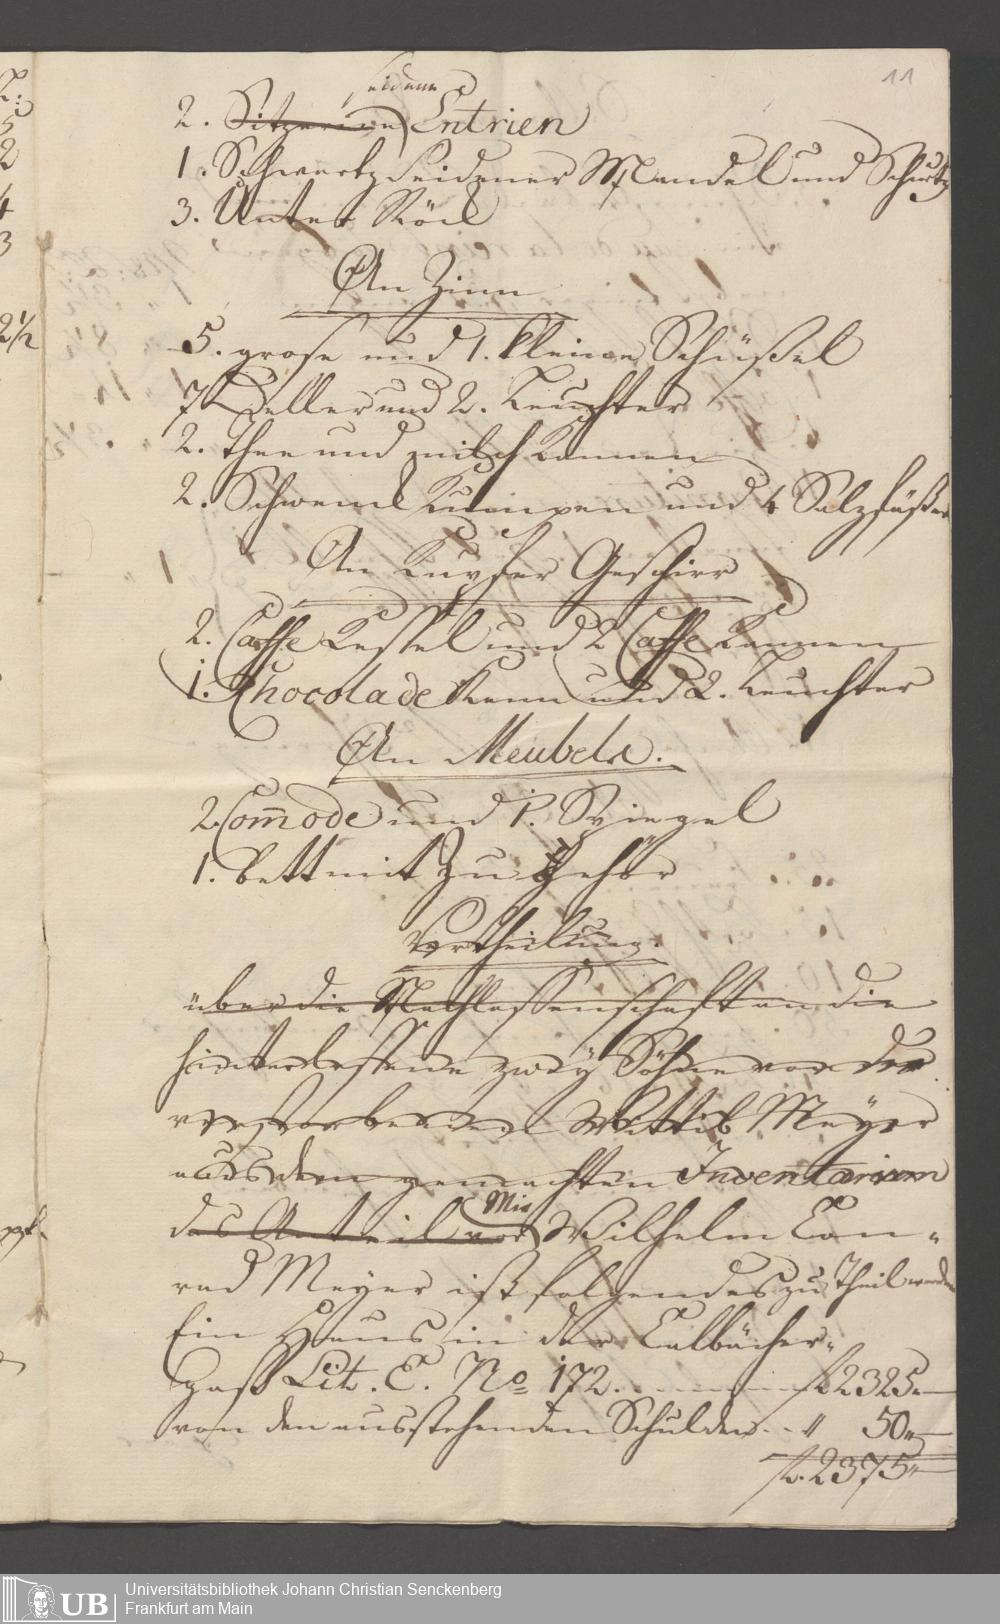 11
seidene
2. Sitzerine Entrien
1. Schwartz seidener Mandel und Schurtz
3. Unter Röck
An Zinn
5. grose und 1. kleine Schüßel
7 Deller und 2. Leuchter
2. Thee und milch Kannen
2. Schwenck Kumpen und 4 Salzfäßer
An Kupfer Geschirr
2. Caffe Kessel und 2 Caffe Kannen
1. Chocolade Kann und 2. Leuchter
An Meubels.
2. Com̄ode und 1. Spiegel
1. bett mit Zu Gehör
Vertheilung.
über die Nachlassenschaft an die
hinterlassene zwey Söhne von der
verstorbenen Wittib Meÿer
aus dem gemachten Inventarium
Mir
das Anteil vor Wilhelm Con-
rad Meyer ist folgendes zu Theil worden
Ein Haus in der Calbächer-
gass Lit. E. No 172. f. 2325.-
von den ausstehenden Schulden .. " 50.-
f. 2375.-
Universitätsbibliothek Johann Christian Senckenberg
Frankfurt am Main
UB